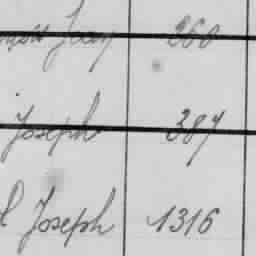 Jean 260
Joseph 387
Joseph 1316